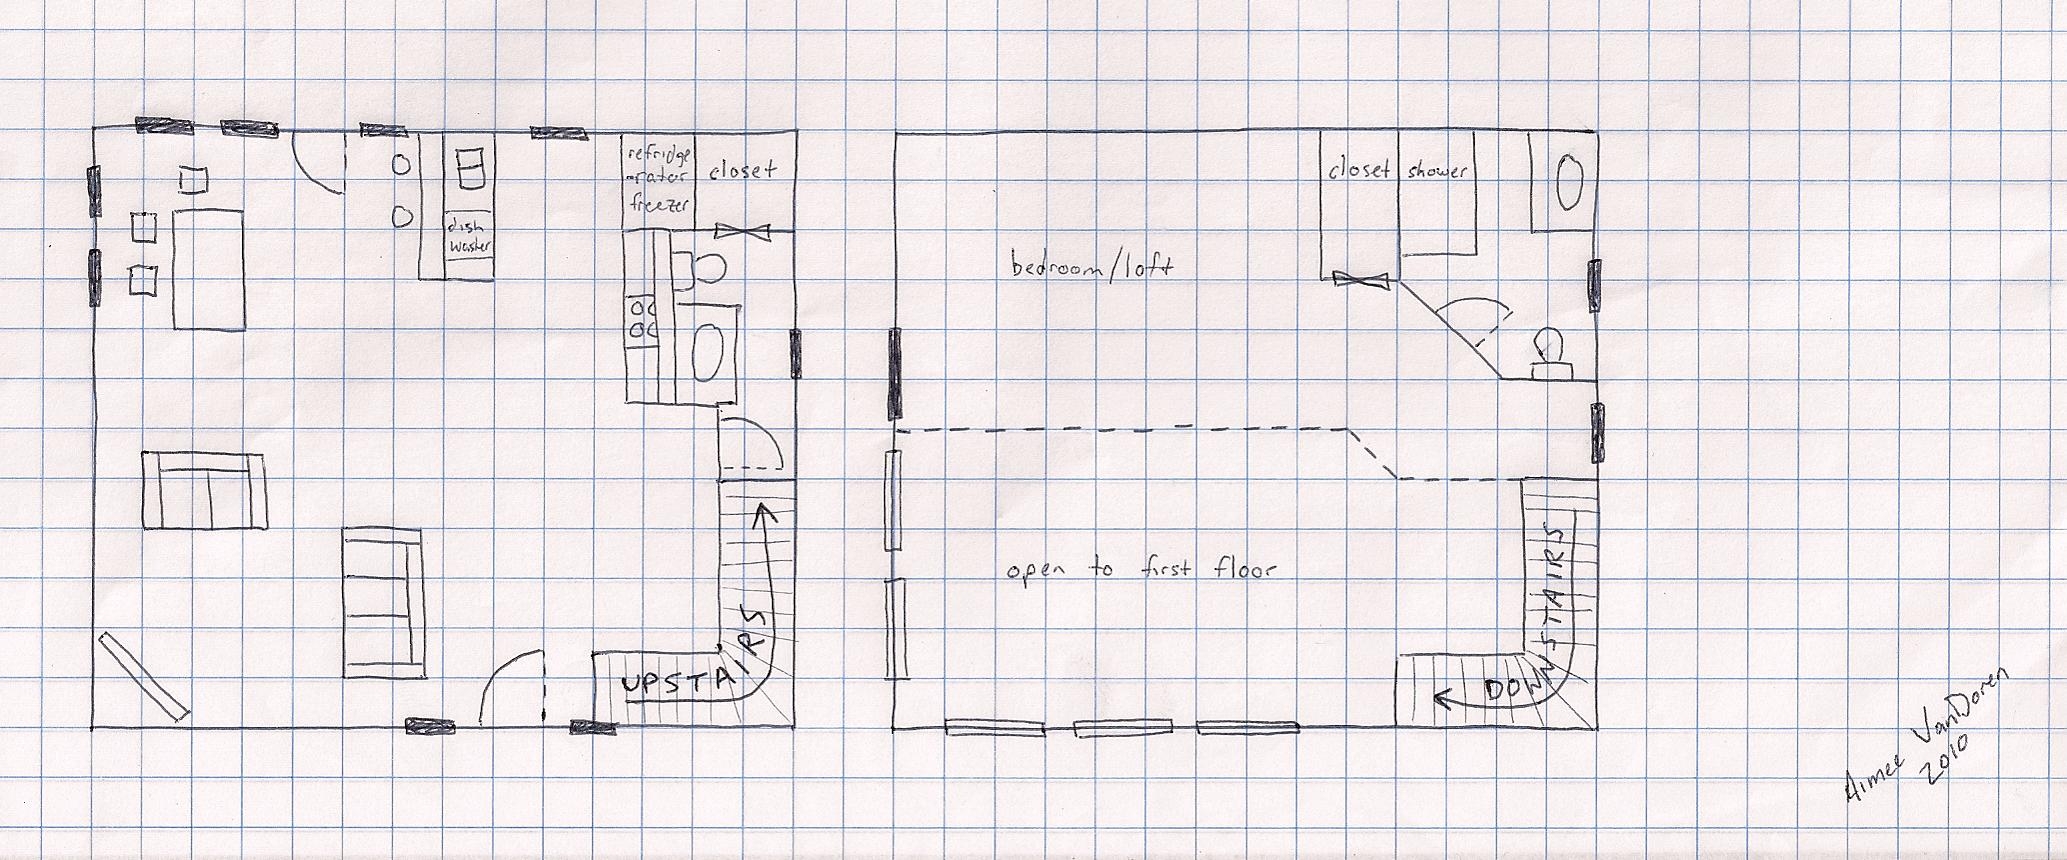 refridge
-rator
freezer
closet
dish
washer
UPSTAIRS
closet
shower
bedroom/loft
open to first floor
DOWNSTAIRS
Aimee VanDoren
2010